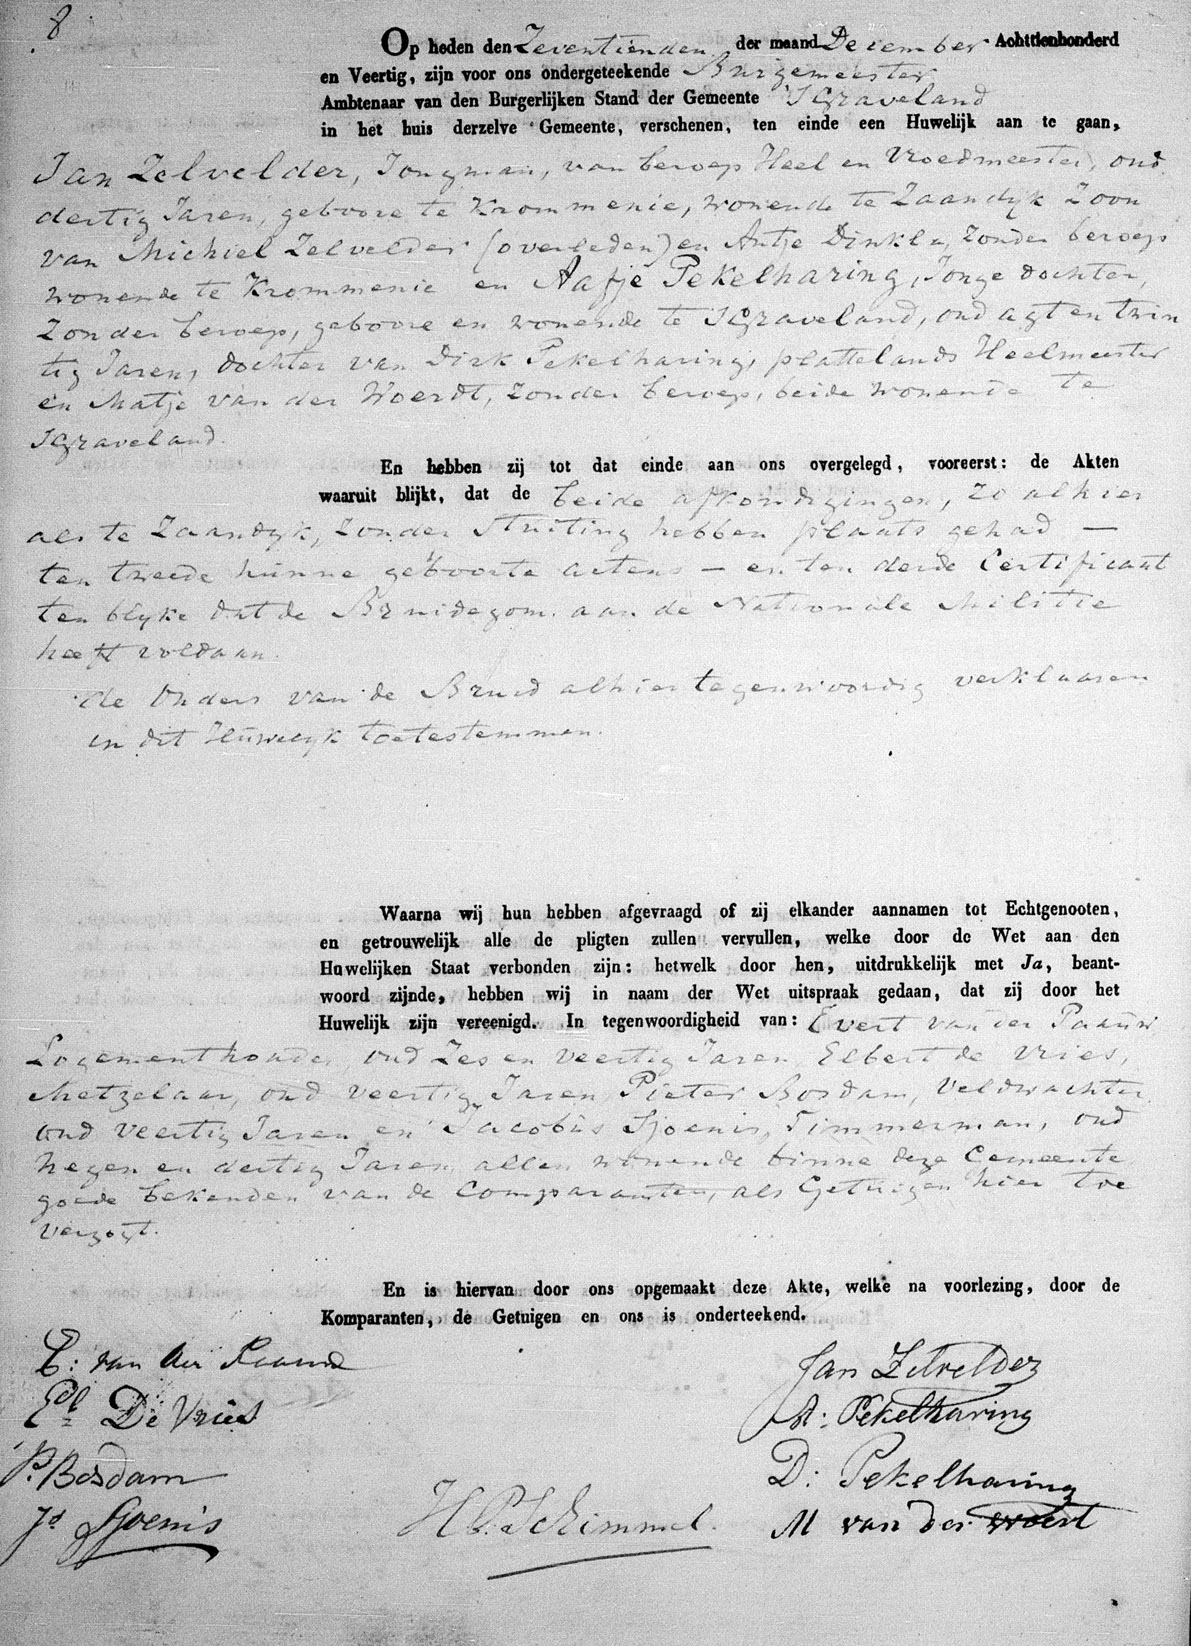 8
Op heden den Zeventienden der maand December Achttienhonderd
en Veertig, zijn voor ons ondergeteekende Burgemeester
Ambtenaar van den Burgerlijken Stand der Gemeente SGraveland
in het huis derzelve Gemeente, verschenen, ten einde een Huwelijk aan te gaan,
Jan Zelvelder, Jongman, van beroep Heel en Vroedmeester, oud
dertig Jaren, geboore te Krommenie, wonende te Zaandyk Zoon
van Michiel Zelvelder (overleden) en Antje Dinkla, Zonder beroep
wonende te Krommenie en Aafje Pekelharing, Jonge dochter,
Zonder beroep, geboore en wonende te SGraveland, oud agt en twin
tig Jaren, dochter van Dirk Pekelharing, plattelands Heelmeester
en Matje van der Woerdt, zonder beroep, beide wonende te
SGraveland.
En hebben zij tot dat einde aan ons overgelegd, vooreerst: de Akten
waaruit blijkt, dat de beide afkondigingen, zo alhier
als te Zaandyk, zonder stuiting hebben plaats gehad —
ten tweede hunne geboorte actens — en ten derde Certificaat
ten blyke dat de Bruidegom aan de Nationale Militie
heeft voldaan.
de Ouders van de Bruid alhier tegenwoordig verklaaren
in dit Huwelyk toetestemmen.
Waarna wij hun hebben afgevraagd of zij elkander aannamen tot Echtgenooten,
en getrouwelijk alle de pligten zullen vervullen, welke door de Wet aan den
Huwelijken Staat verbonden zijn: hetwelk door hen, uitdrukkelijk met Ja, beant-
woord zijnde, hebben wij in naam der Wet uitspraak gedaan, dat zij door het
Huwelijk zijn vereenigd. In tegenwoordigheid van: Evert van der Paauw
Logementhouder oud Zes en veertig Jaren Elbert de Vries,
Metzelaar, oud veertig Jaren Pieter Bosdam, Veldwachter
oud veertig Jaren en Jacobus Sjoenis, Timmerman, oud
negen en dertig Jaren allen wonende binne deze Gemeente
goede bekenden van de Comparanten, als Getuigen hier toe
verzogt.
En is hiervan door ons opgemaakt deze Akte, welke na voorlezing, door de
Komparanten, de Getuigen en ons is onderteekend.
E: van der Paauw
Jan Zelvelder
Ebt De Vries
A: Pekelharing
P. Bosdam
D: Pekelharing
Js Sjoenis
H. P. Schimmel.
M van der Woert